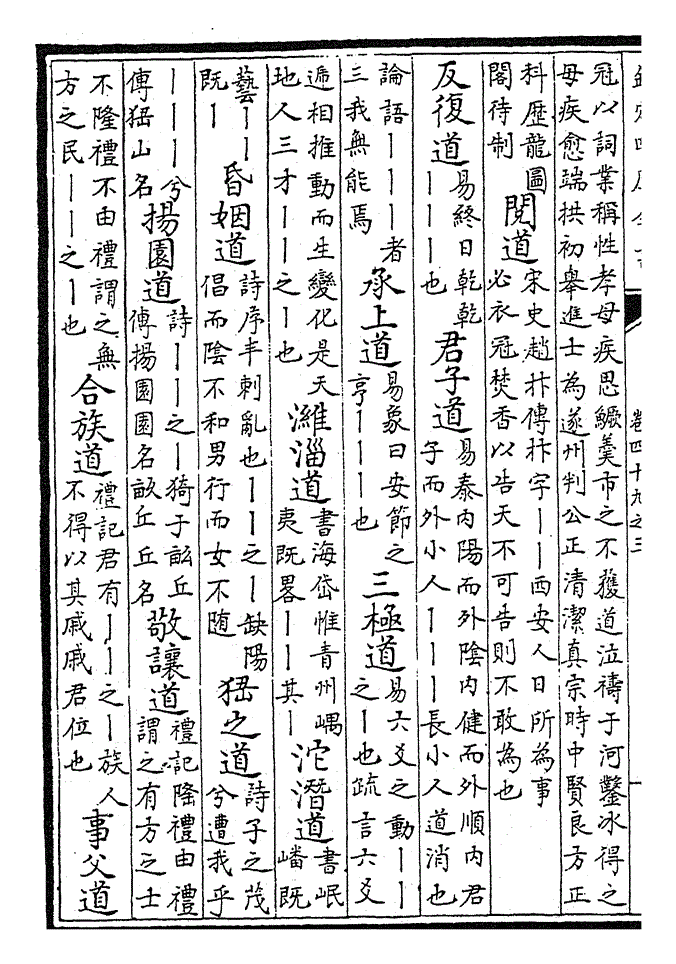 欽定四庫全書
卷四十九之三
冠以詞業稱性孝母疾思鱖羮市之不獲道泣禱于河鑿冰得之
母疾愈端拱初舉進士為遂州判公正清潔真宗時中賢良方正
科歴龍圖
閣待制
閱道
宋史趙抃傳抃字丨丨西安人日所為事
必衣冠焚香以告天不可告則不敢為也
反復道
易終日乾乾
丨丨丨也
君子道
易泰内陽而外陰内健而外順内君
子而外小人丨丨丨長小人道消也
論語丨丨丨者
三我無能焉
承上道
易象曰安節之
亨丨丨丨也
三極道
易六爻之動丨丨
之丨也疏言六爻
遞相推動而生變化是天
地人三才丨丨之丨也
濰淄道
書海岱惟青州嵎
夷既畧丨丨其丨
沱潛道
書岷
嶓既
藝丨丨
既丨
昏姻道
詩序丰刺亂也丨丨之丨缺陽
倡而陰不和男行而女不随
峱之道
詩子之茂
兮遭我乎
丨丨丨兮
傳峱山名
揚園道
詩丨丨之丨猗于畝丘
傳揚園園名畝丘丘名
敬讓道
禮記隆禮由禮
謂之有方之士
不隆禮不由禮謂之無
方之民丨丨之丨也
合族道
禮記君有丨丨之丨族人
不得以其戚戚君位也
事父道